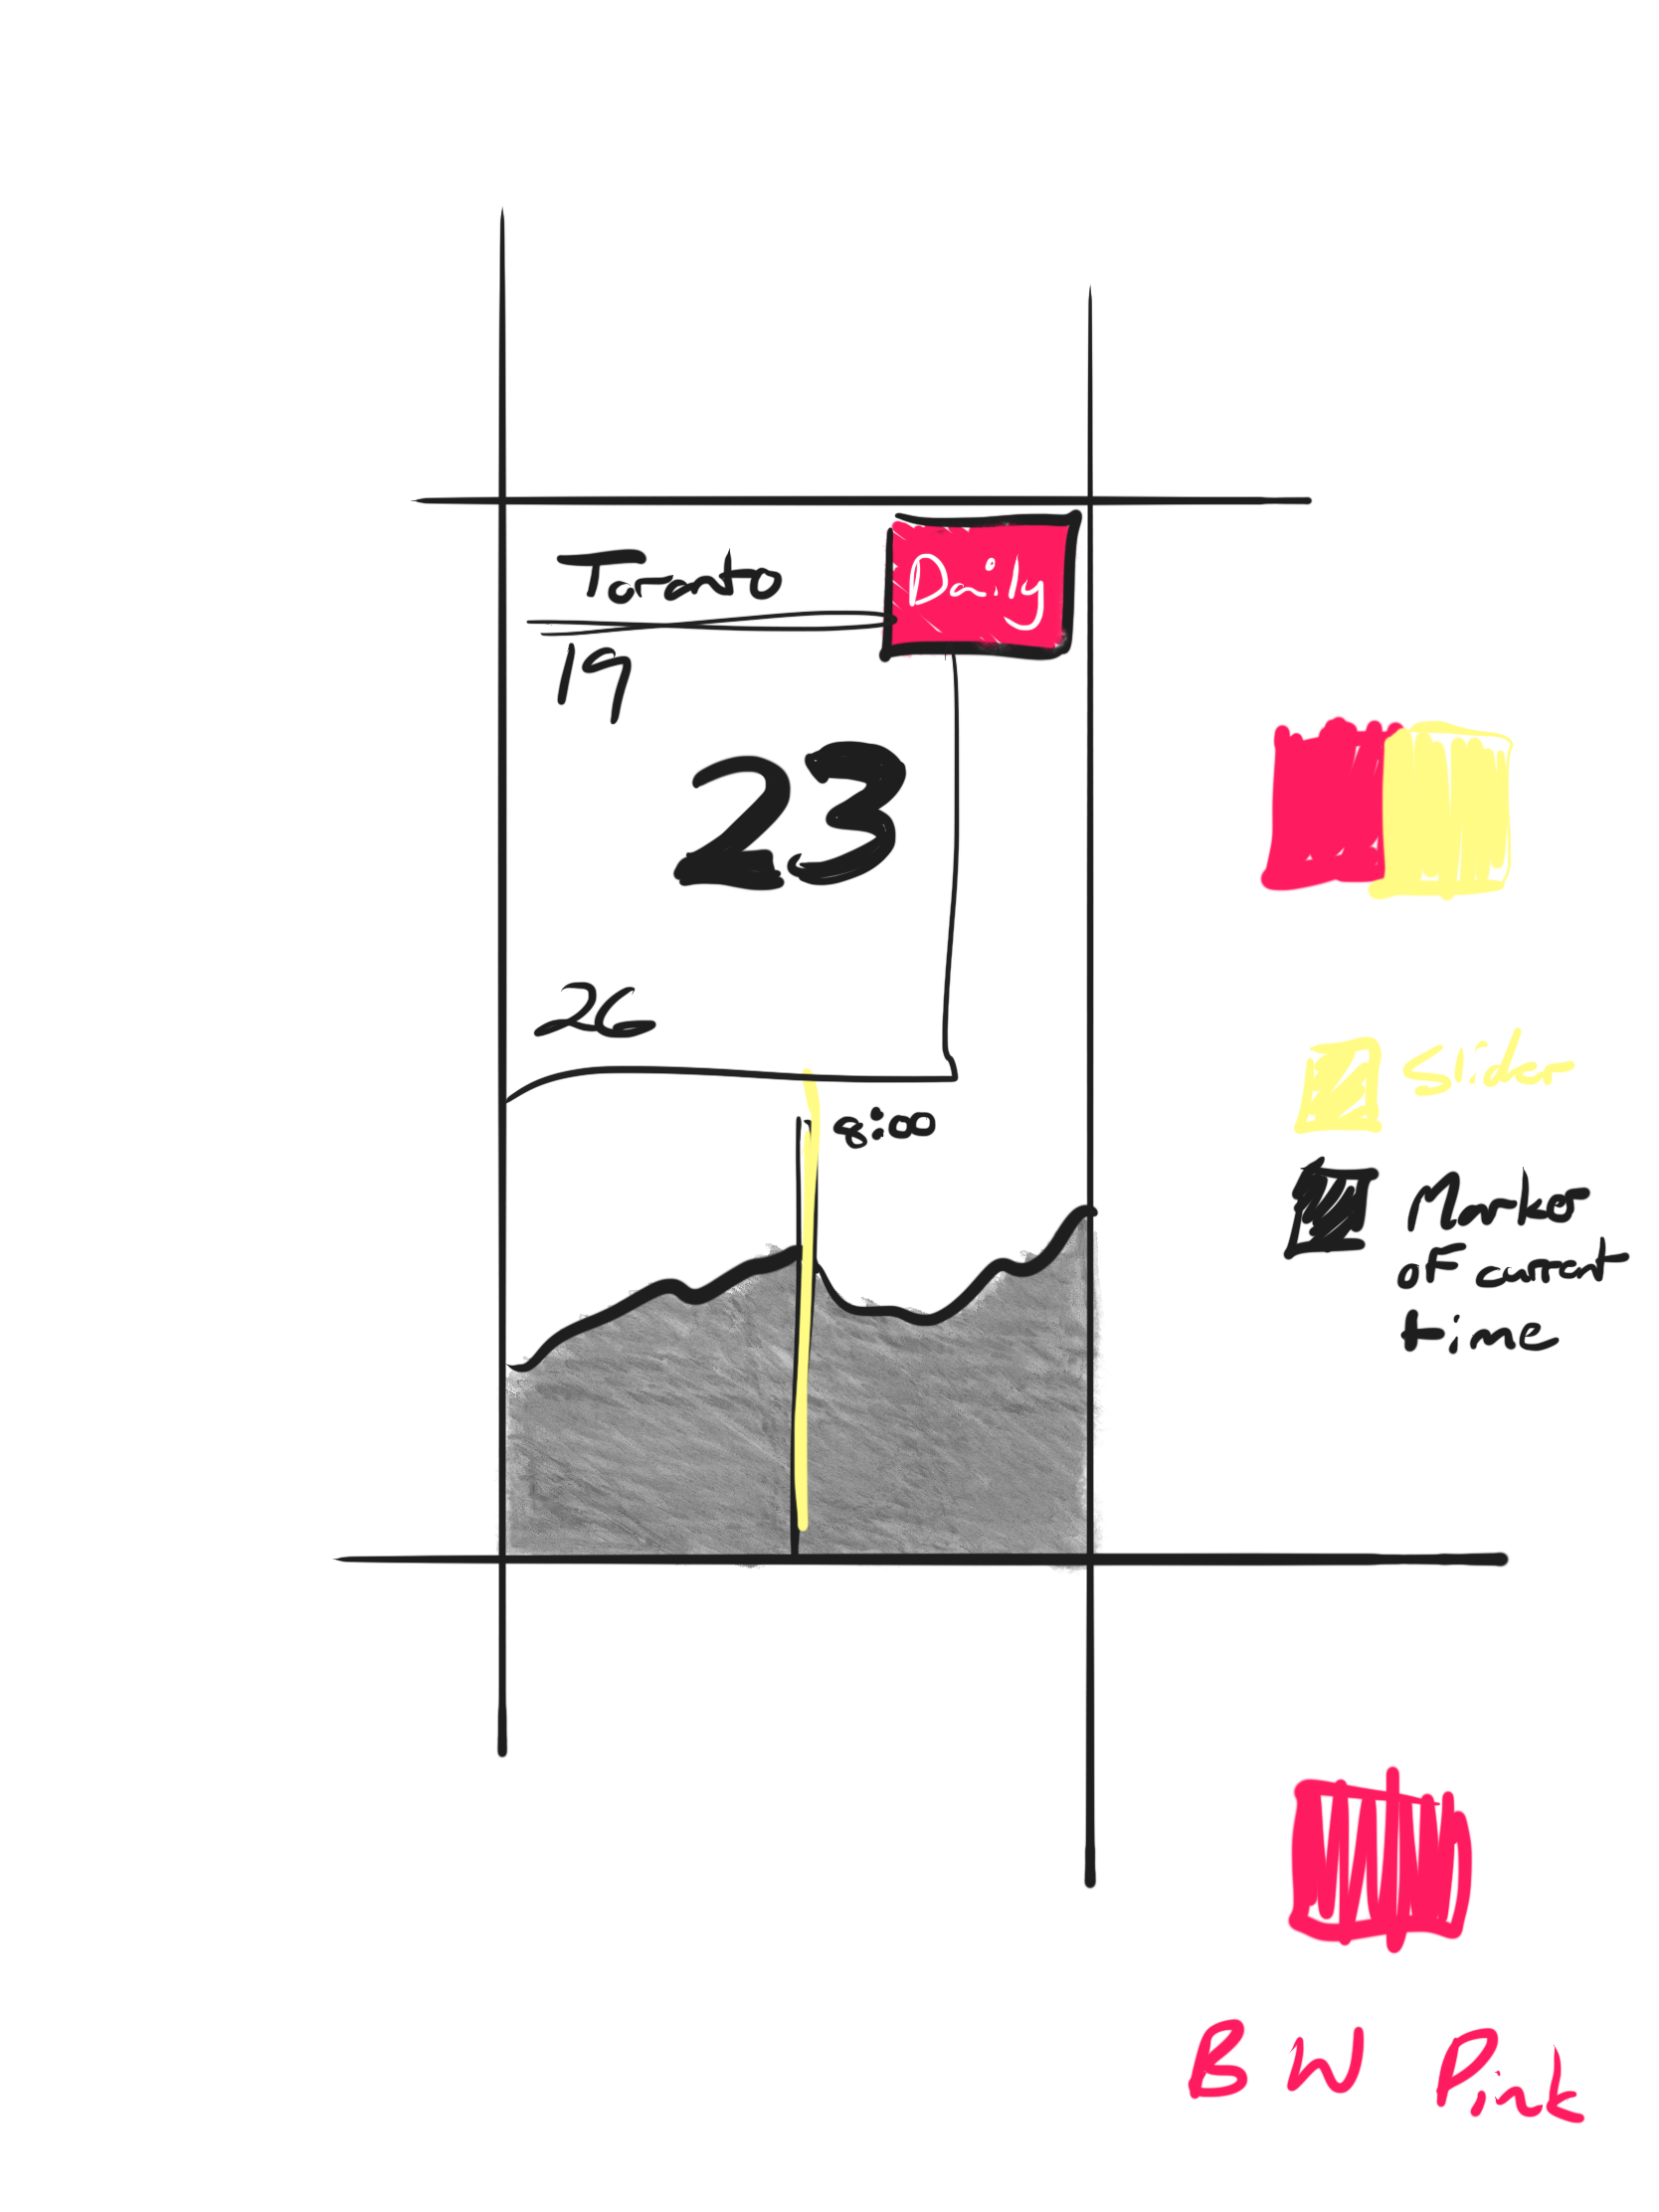 Toronto
Daily
19
23
26
8:00
Slider
Marker
of current
time
B W Pink